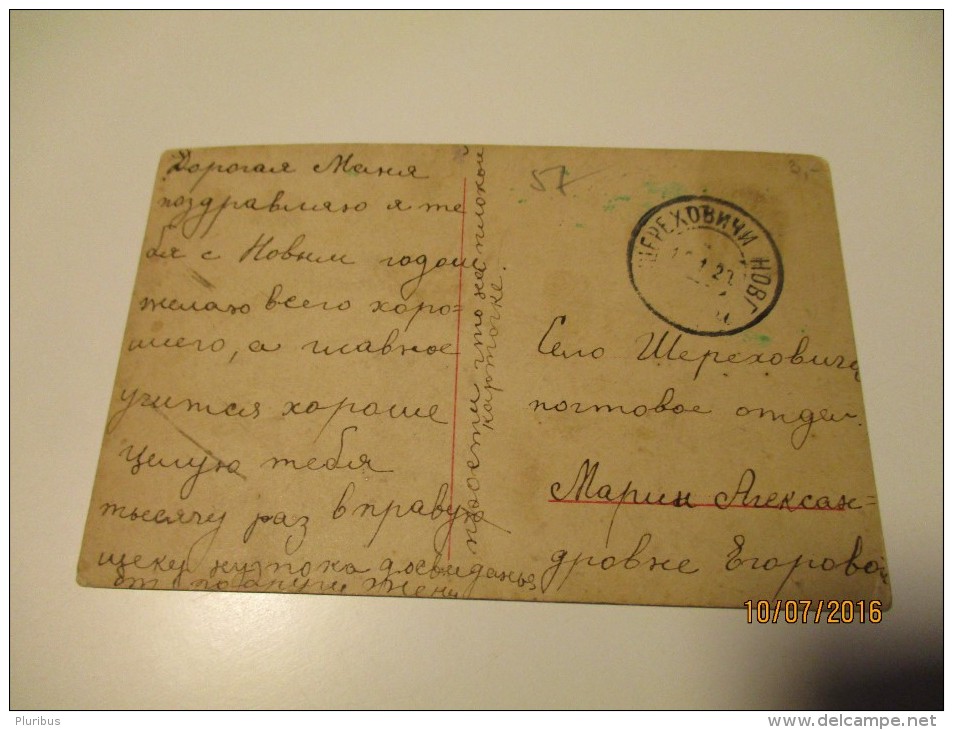 Дорогая Маня
поздравляю я те
бя с Новым годом
желаю всего хоро-
шего, а главное
учится хорошо
целую тебя
тысячу раз в праву
щеку ну пока досвиданья
от подруги Жени
прости что на плохой
карточке.
57
ШЕРЕХОВИЧИ НОВГ
Село Шереховичи
почтовое отдел.
Марии Алексан-
дровне Егоровой
10/07/2016
Pluribus
www.delcampe.net